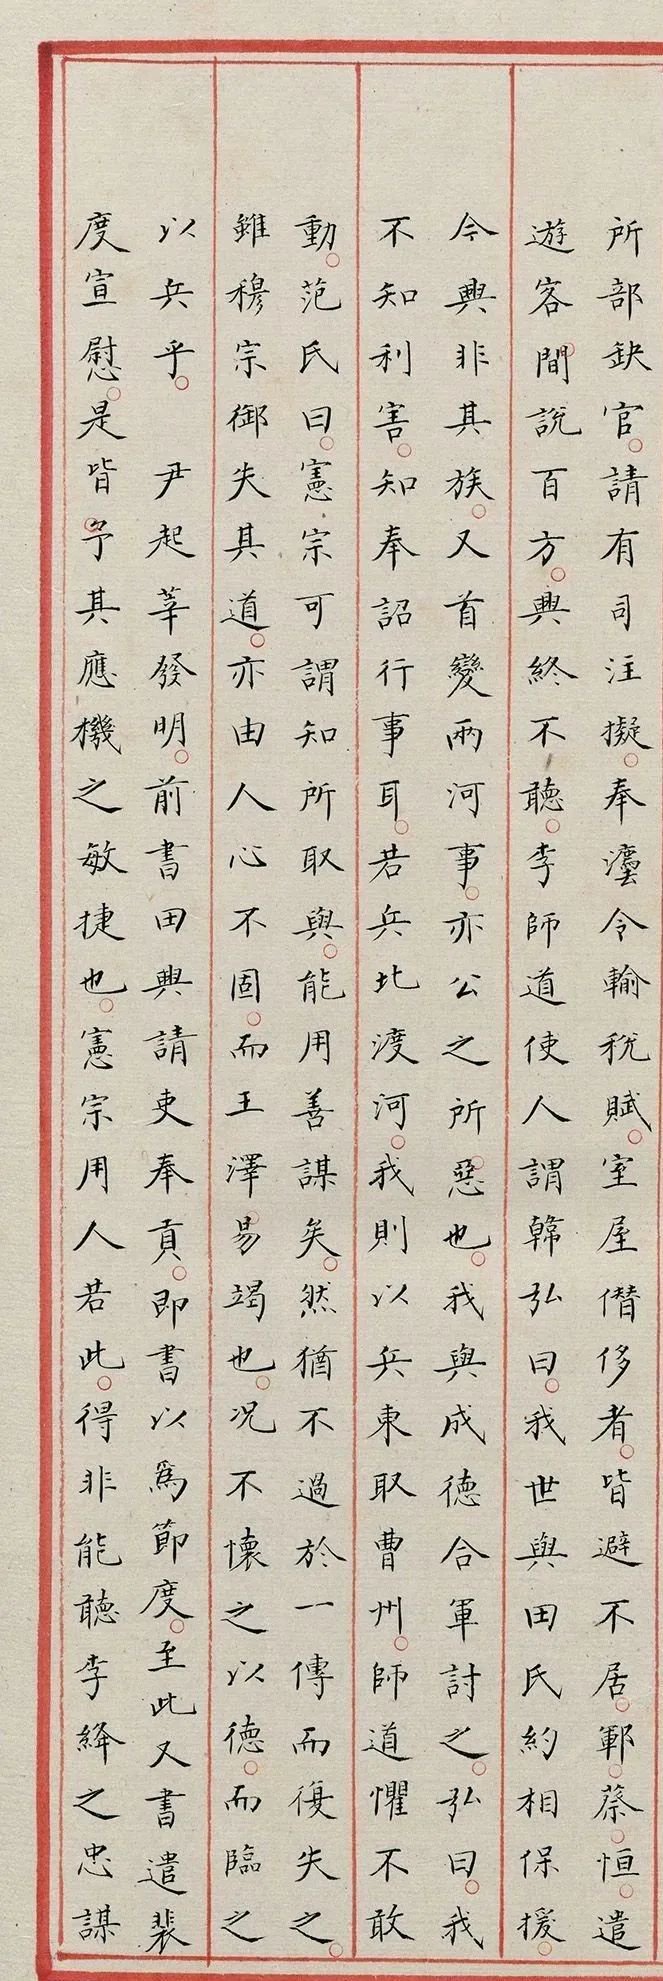 所部缺官。請有司注擬。奉灋令輸稅賦。室屋僭侈者。皆避不居。鄆。蔡。恒。遣
遊客間說百方。興終不聽。李師道使人謂韓弘曰。我世與田氏約相保援。
今興非其族。又首變兩河事。亦公之所惡也。我與成德合軍討之。弘曰。我
不知利害。知奉詔行事耳。若兵北渡河。我則以兵東取曹州。師道懼不敢
動。范氏曰。憲宗可謂知所取與。能用善謀矣。然猶不過於一傳而復失之。
雖穆宗御失其道。亦由人心不固。而王澤易竭也。況不懷之以德。而臨之
以兵乎。尹起莘發明。前書田興請吏奉貢。即書以爲節度。至此又書遣裴
度宣慰。是皆予其應機之敏捷也。憲宗用人若此。得非能聽李絳之忠謀